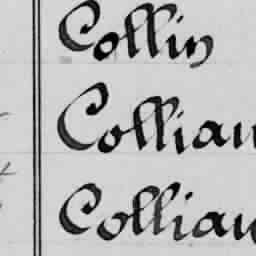 Collin
Collian
Collian